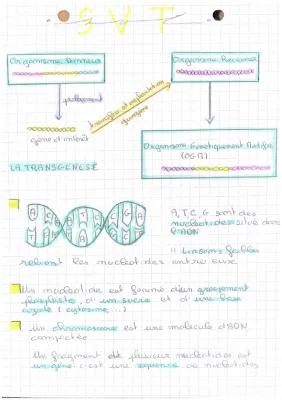 SVT
Organisme Donneur
Organisme Receveur
prélèvement
transfert et implantation
génique
gène d'intérêt
Organisme Génétiquement Modifié
(OGM)
LA TRANSGENÈSE
A T C G A
T A
A, T, C, G sont des
nucléotides situé dans
l'ADN
liaisons faibles
relient les nucléotides entre eux
Un nucléotide est formé d'un groupement
phosphate, d'un sucre et d'une base
azoté (cytosine, ...)
Un chromosome est une molécule d'ADN
compactée
Un fragment de plusieur nucléotides est
un gène c'est une séquence de nucléotides